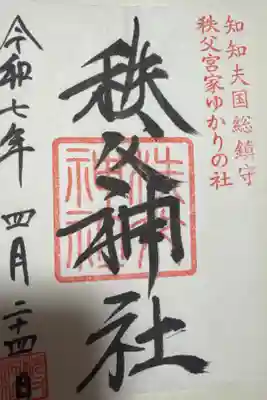 知知夫国総鎮守
秩父宮家ゆかりの社
秩父神社
令和七年 四月 二十四日